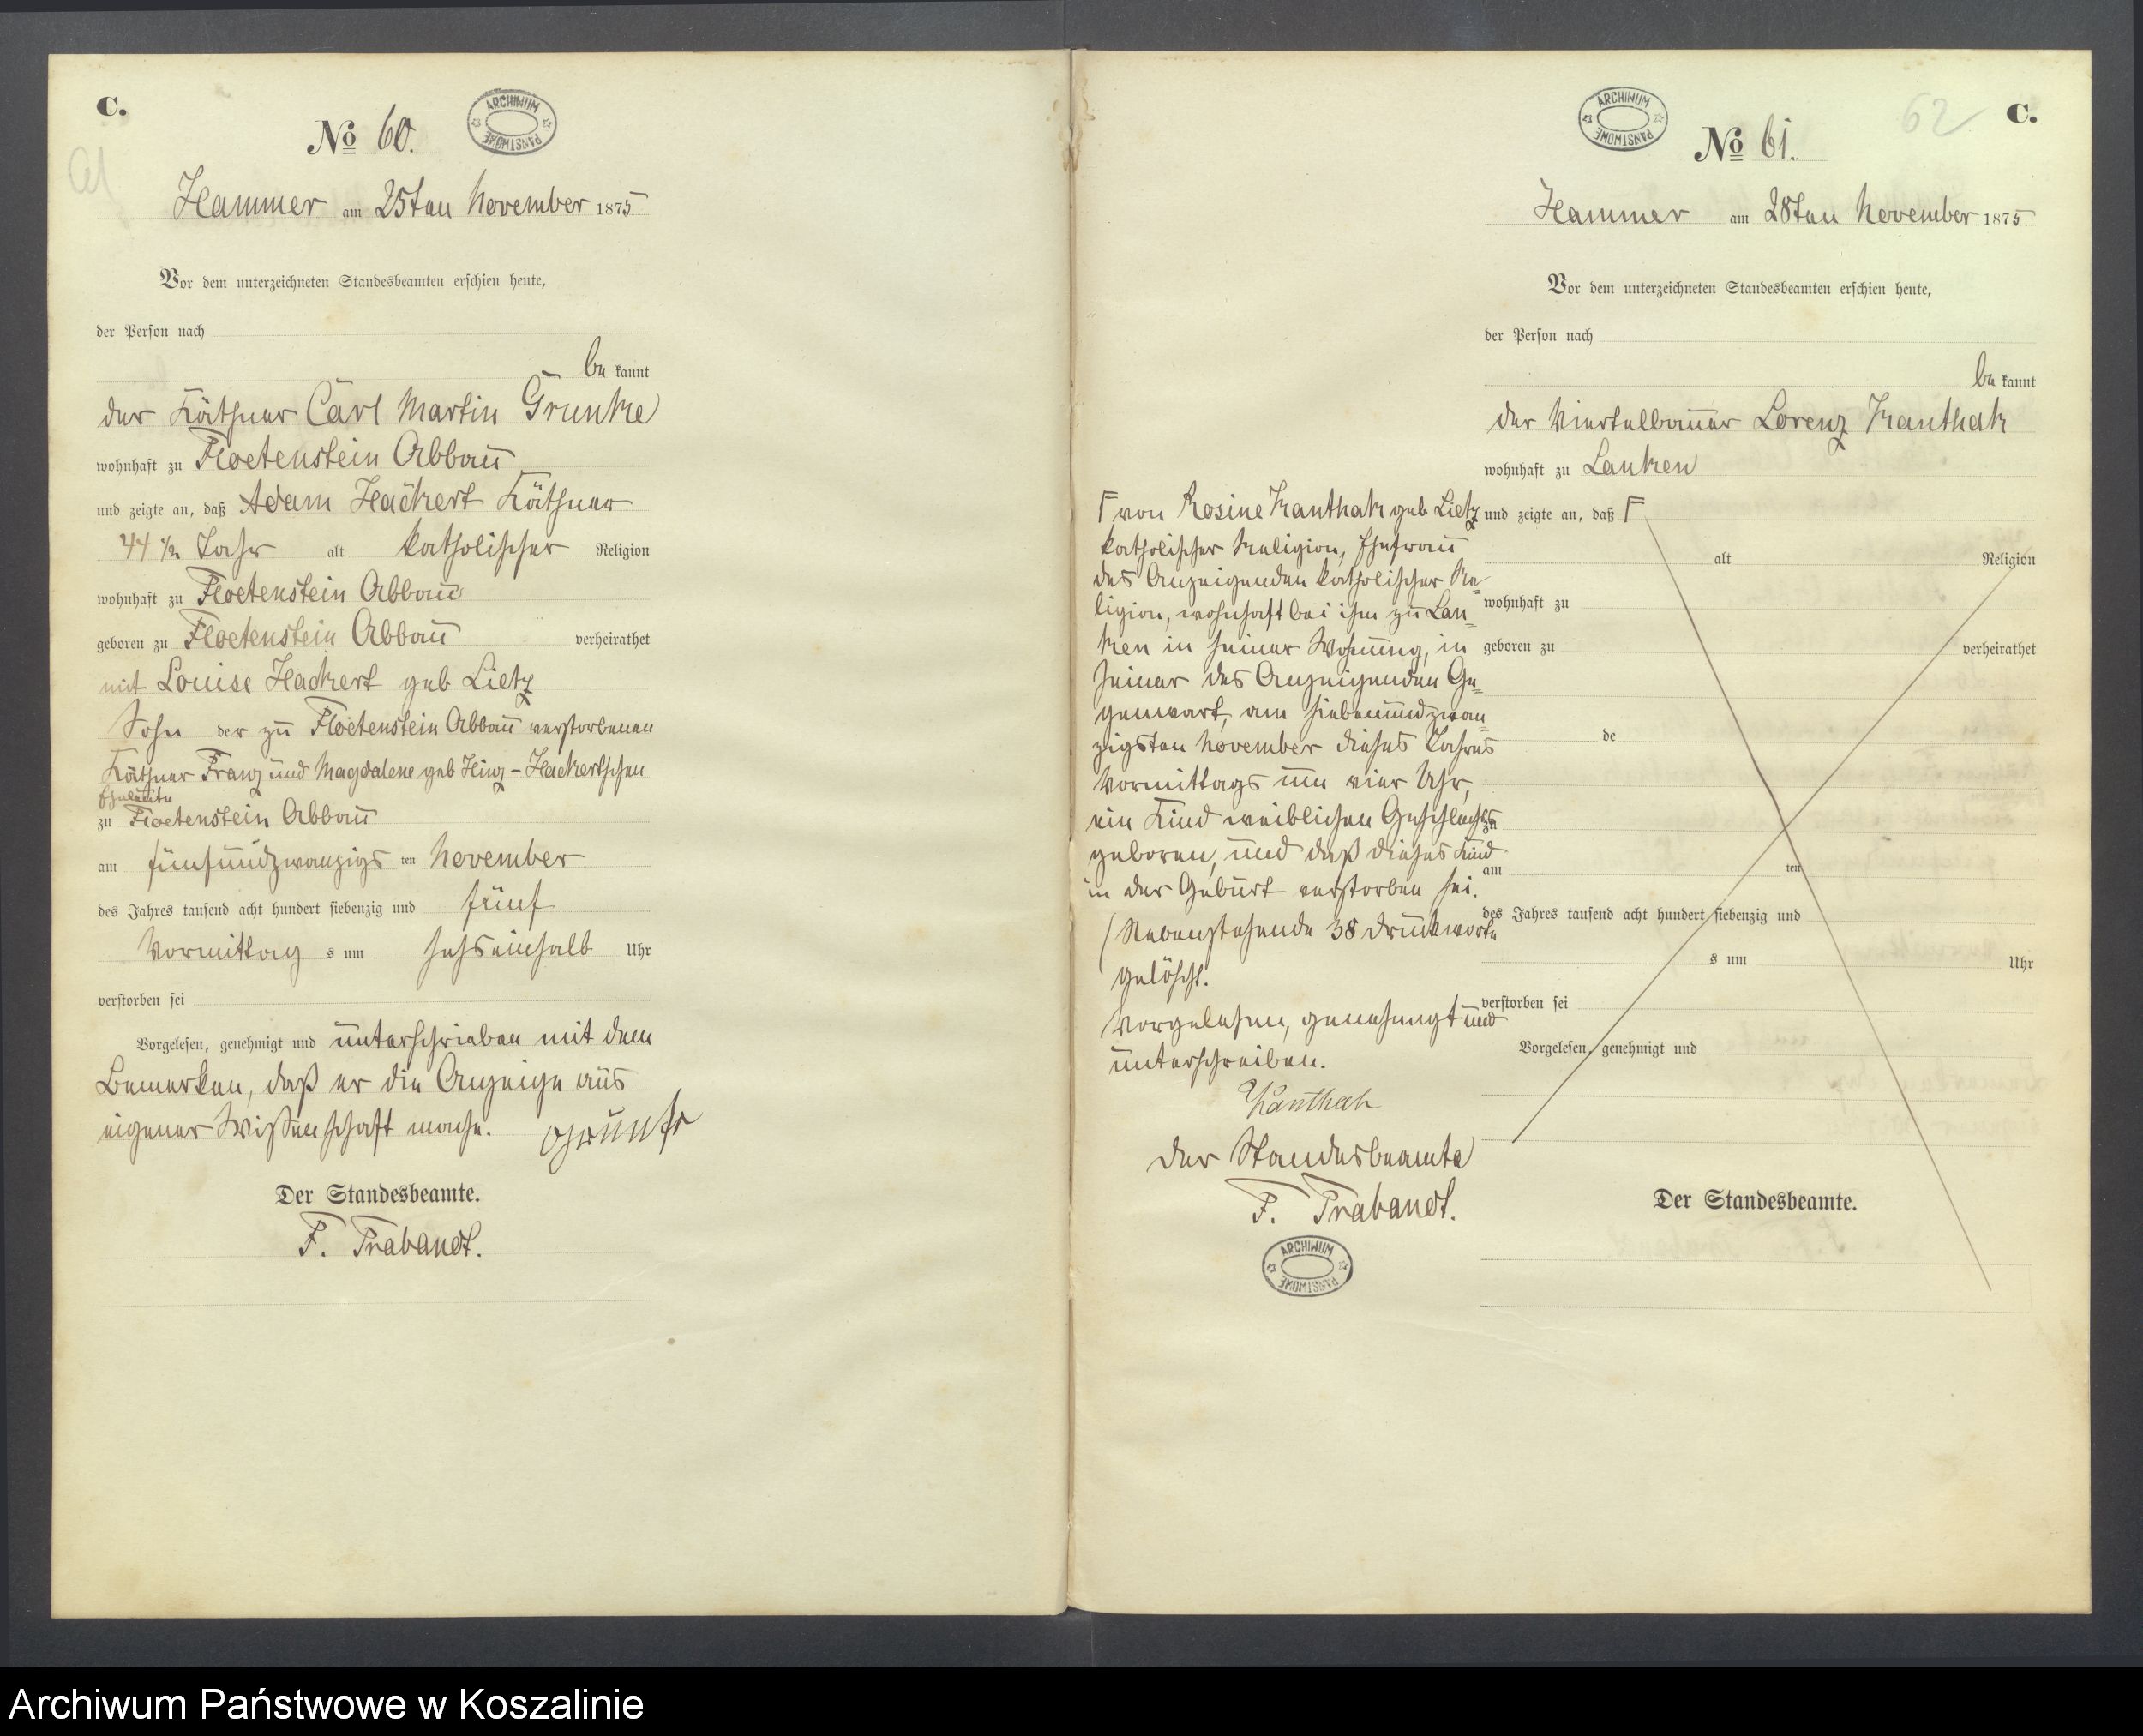 C.
No 60.
ARCHIWUM PAŃSTWOWE
61
Hammer am 25ten November 1875
Vor dem unterzeichneten Standesbeamten erschien heute,
der Person nach
be kannt
der Käthner Carl Martin Grunke
wohnhaft zu Floetenstein Abbau
und zeigte an, daß Adam Hackert Käthner
44 1/2 Jahr alt katholischer Religion
wohnhaft zu Floetenstein Abbau
geboren zu Floetenstein Abbau verheirathet
mit Louise Hackert geb Lietz
Sohn der zu Floetenstein Abbau verstorbenen
Käthner Franz und Magdalene geb Hinz-Hackertschen
Eheleute
zu Floetenstein Abbau
am fünfundzwanzigs ten November
des Jahres tausend acht hundert siebenzig und fünf
Vormittag s um sechseinhalb Uhr
verstorben sei
Vorgelesen, genehmigt und unterschrieben mit dem
Bemerken, daß er die Anzeige aus
eigener Wissenschaft mache. Grunke
Der Standesbeamte.
F. Trabandt.
ARCHIWUM PAŃSTWOWE
62
C.
No 61.
Hammer am 28ten November 1875
Vor dem unterzeichneten Standesbeamten erschien heute,
der Person nach
be kannt
der Viertelbauer Lorenz Kanthak
wohnhaft zu Lanken
und zeigte an, daß Γ
alt Religion
wohnhaft zu
geboren zu verheirathet
de
zu
am ten
des Jahres tausend acht hundert siebenzig und
s um Uhr
verstorben sei
Vorgelesen, genehmigt und
Der Standesbeamte.
Γ von Rosine Kanthak geb Lietz
katholischer Religion, Ehefrau
des Anzeigenden katholischer Re-
ligion, wohnhaft bei ihm zu Lan-
ken in seiner Wohnung, in
seiner des Anzeigenden Ge-
genwart, am siebenundzwan-
zigsten November dieses Jahres
Vormittags um vier Uhr,
ein Kind weiblichen Geschlechts
geboren, und daß dieses Kind
in der Geburt verstorben sei.
(Nebenstehende 38 Druckworte
gelöscht.
Vorgelesen, genehmigt und
unterschreiben.
Kanthak
Der Standesbeamte
F. Trabandt.
ARCHIWUM PAŃSTWOWE
Archiwum Państwowe w Koszalinie